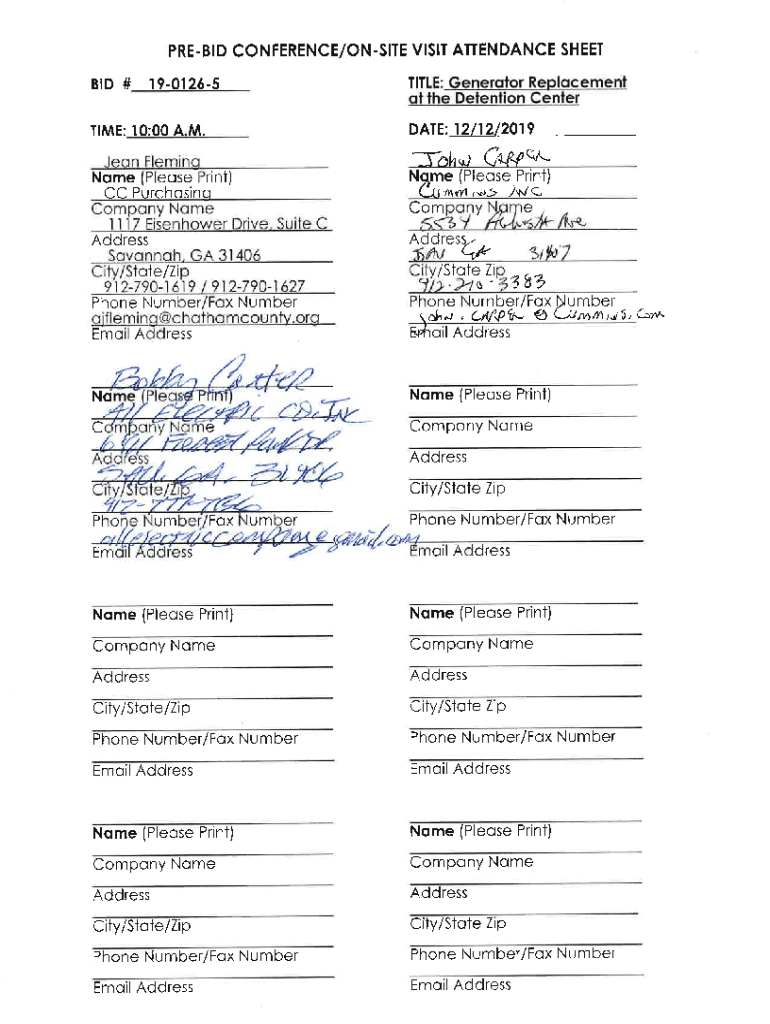 PRE-BID CONFERENCE/ON-SITE VISIT ATTENDANCE SHEET
BID # 19-0126-5
TITLE: Generator Replacement
at the Detention Center
TIME: 10:00 A.M.
DATE: 12/12/2019
Jean Fleming
Name (Please Print)
CC Purchasing
Company Name
1117 Eisenhower Drive, Suite C
Address
Savannah, GA 31406
City/State/Zip
912-790-1619 / 912-790-1627
Phone Number/Fax Number
ajfleming@chathamcounty.org
Email Address
John CARPER
Name (Please Print)
Cummins INC
Company Name
5534 Augusta Ave
Address
SAV GA
City/State Zip
912-210-3383
Phone Number/Fax Number
john.CARPER@Cummins.Com
Email Address
Bobby
Name (Please Print)
All Electric CO. INC
Company Name
Forest
Address
SAV. GA. 31406
City/State/Zip
912-
Phone Number/Fax Number
allelectriccompany@gmail.com
Email Address
Name (Please Print)
Company Name
Address
City/State Zip
Phone Number/Fax Number
Email Address
Name (Please Print)
Company Name
Address
City/State/Zip
Phone Number/Fax Number
Email Address
Name (Please Print)
Company Name
Address
City/State Zip
Phone Number/Fax Number
Email Address
Name (Please Print)
Company Name
Address
City/State/Zip
Phone Number/Fax Number
Email Address
Name (Please Print)
Company Name
Address
City/State Zip
Phone Number/Fax Number
Email Address